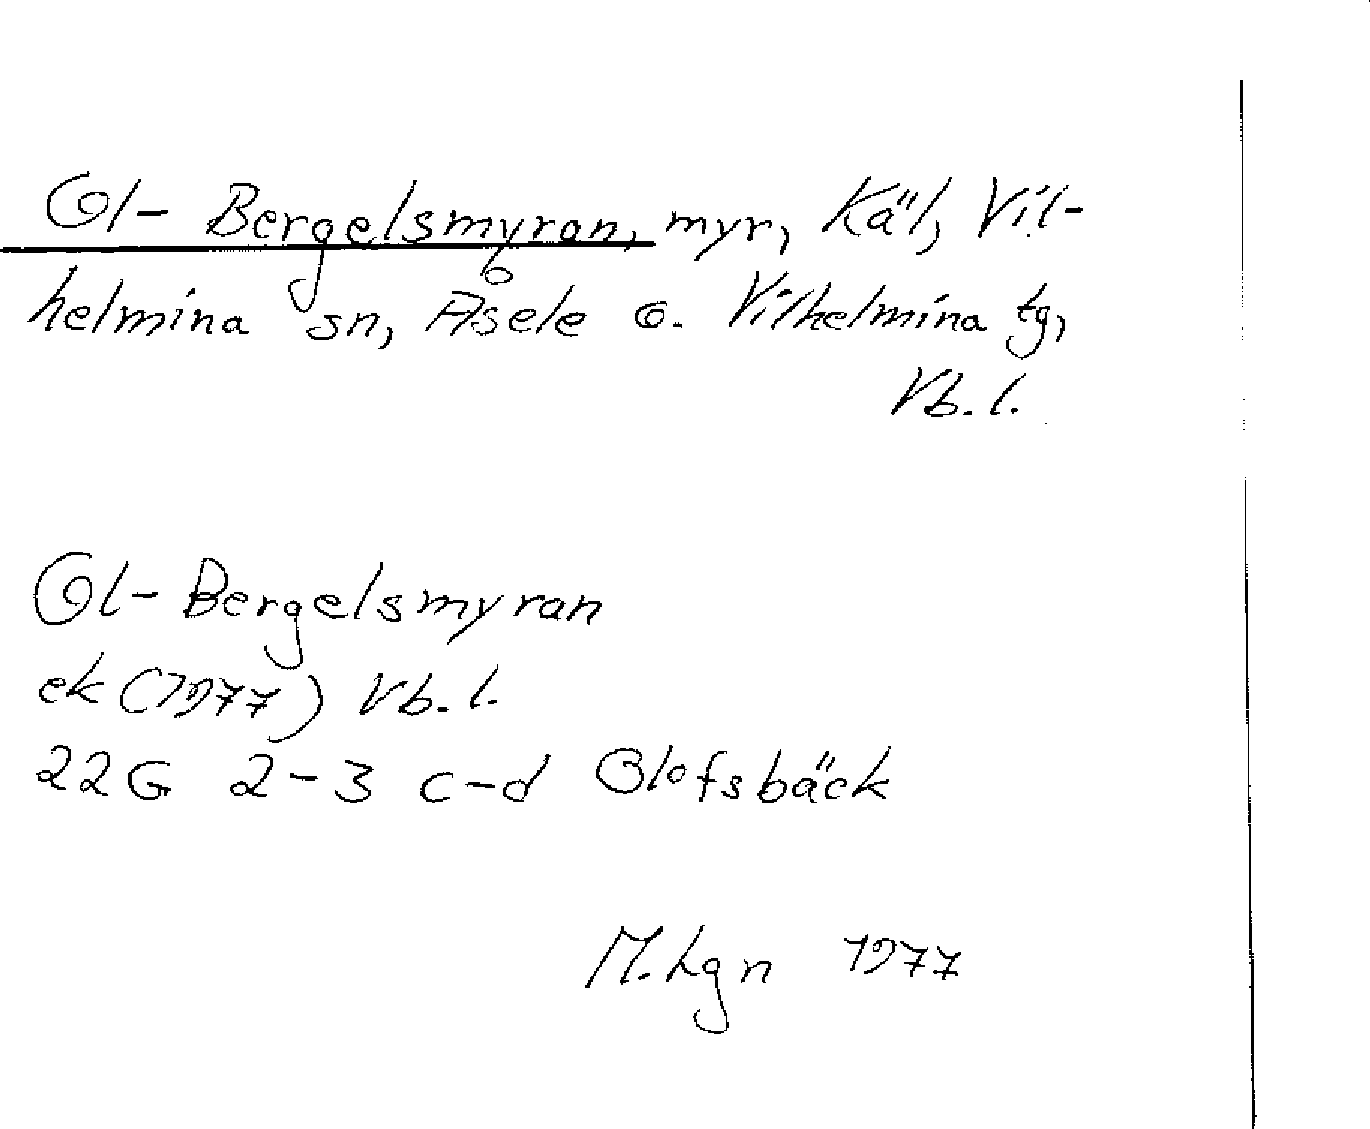 Ol- Bergelsmyran, myr, Käl, Vil-
helmina sn, Åsele o. Vilhelmina tg,
Vb. l.
Ol- Bergelsmyran
ek (1977) Vb. l.
22G 2-3 c-d Olofsbäck
M. Lgn 1977